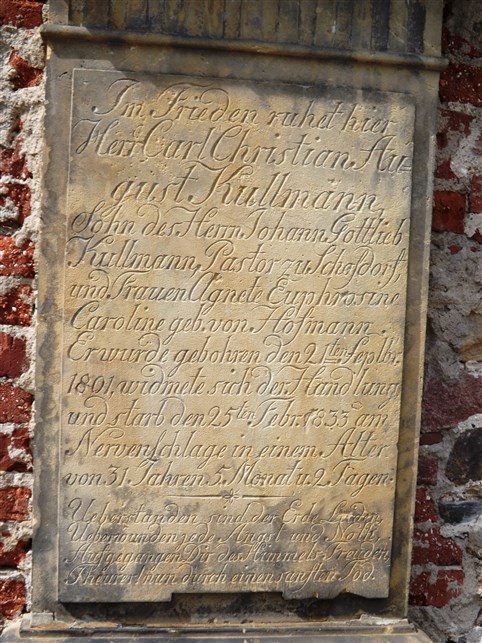 Im Frieden ruhet hier
Herr Carl Christian Au-
gust Kullmann,
Sohn des Herrn Johann Gottlieb
Kullmann, Pastor zu Schosdorf,
und Frauen Agnete Euphrosine
Caroline geb. von Hofmann.
Er wurde gebohren den 21ten Septbr.
1801, widmete sich der Handlung
und starb den 25ten Febr. 1833 am
Nervenschlage in einem Alter
von 31 Jahren 5 Monat u. 2 Tagen.
Ueberstanden sind der Erde Leiden,
Ueberwunden jede Angst und Noth,
Aufgegangen Dir des Himmels Freuden,
Theurer! nun durch einen sanften Tod.